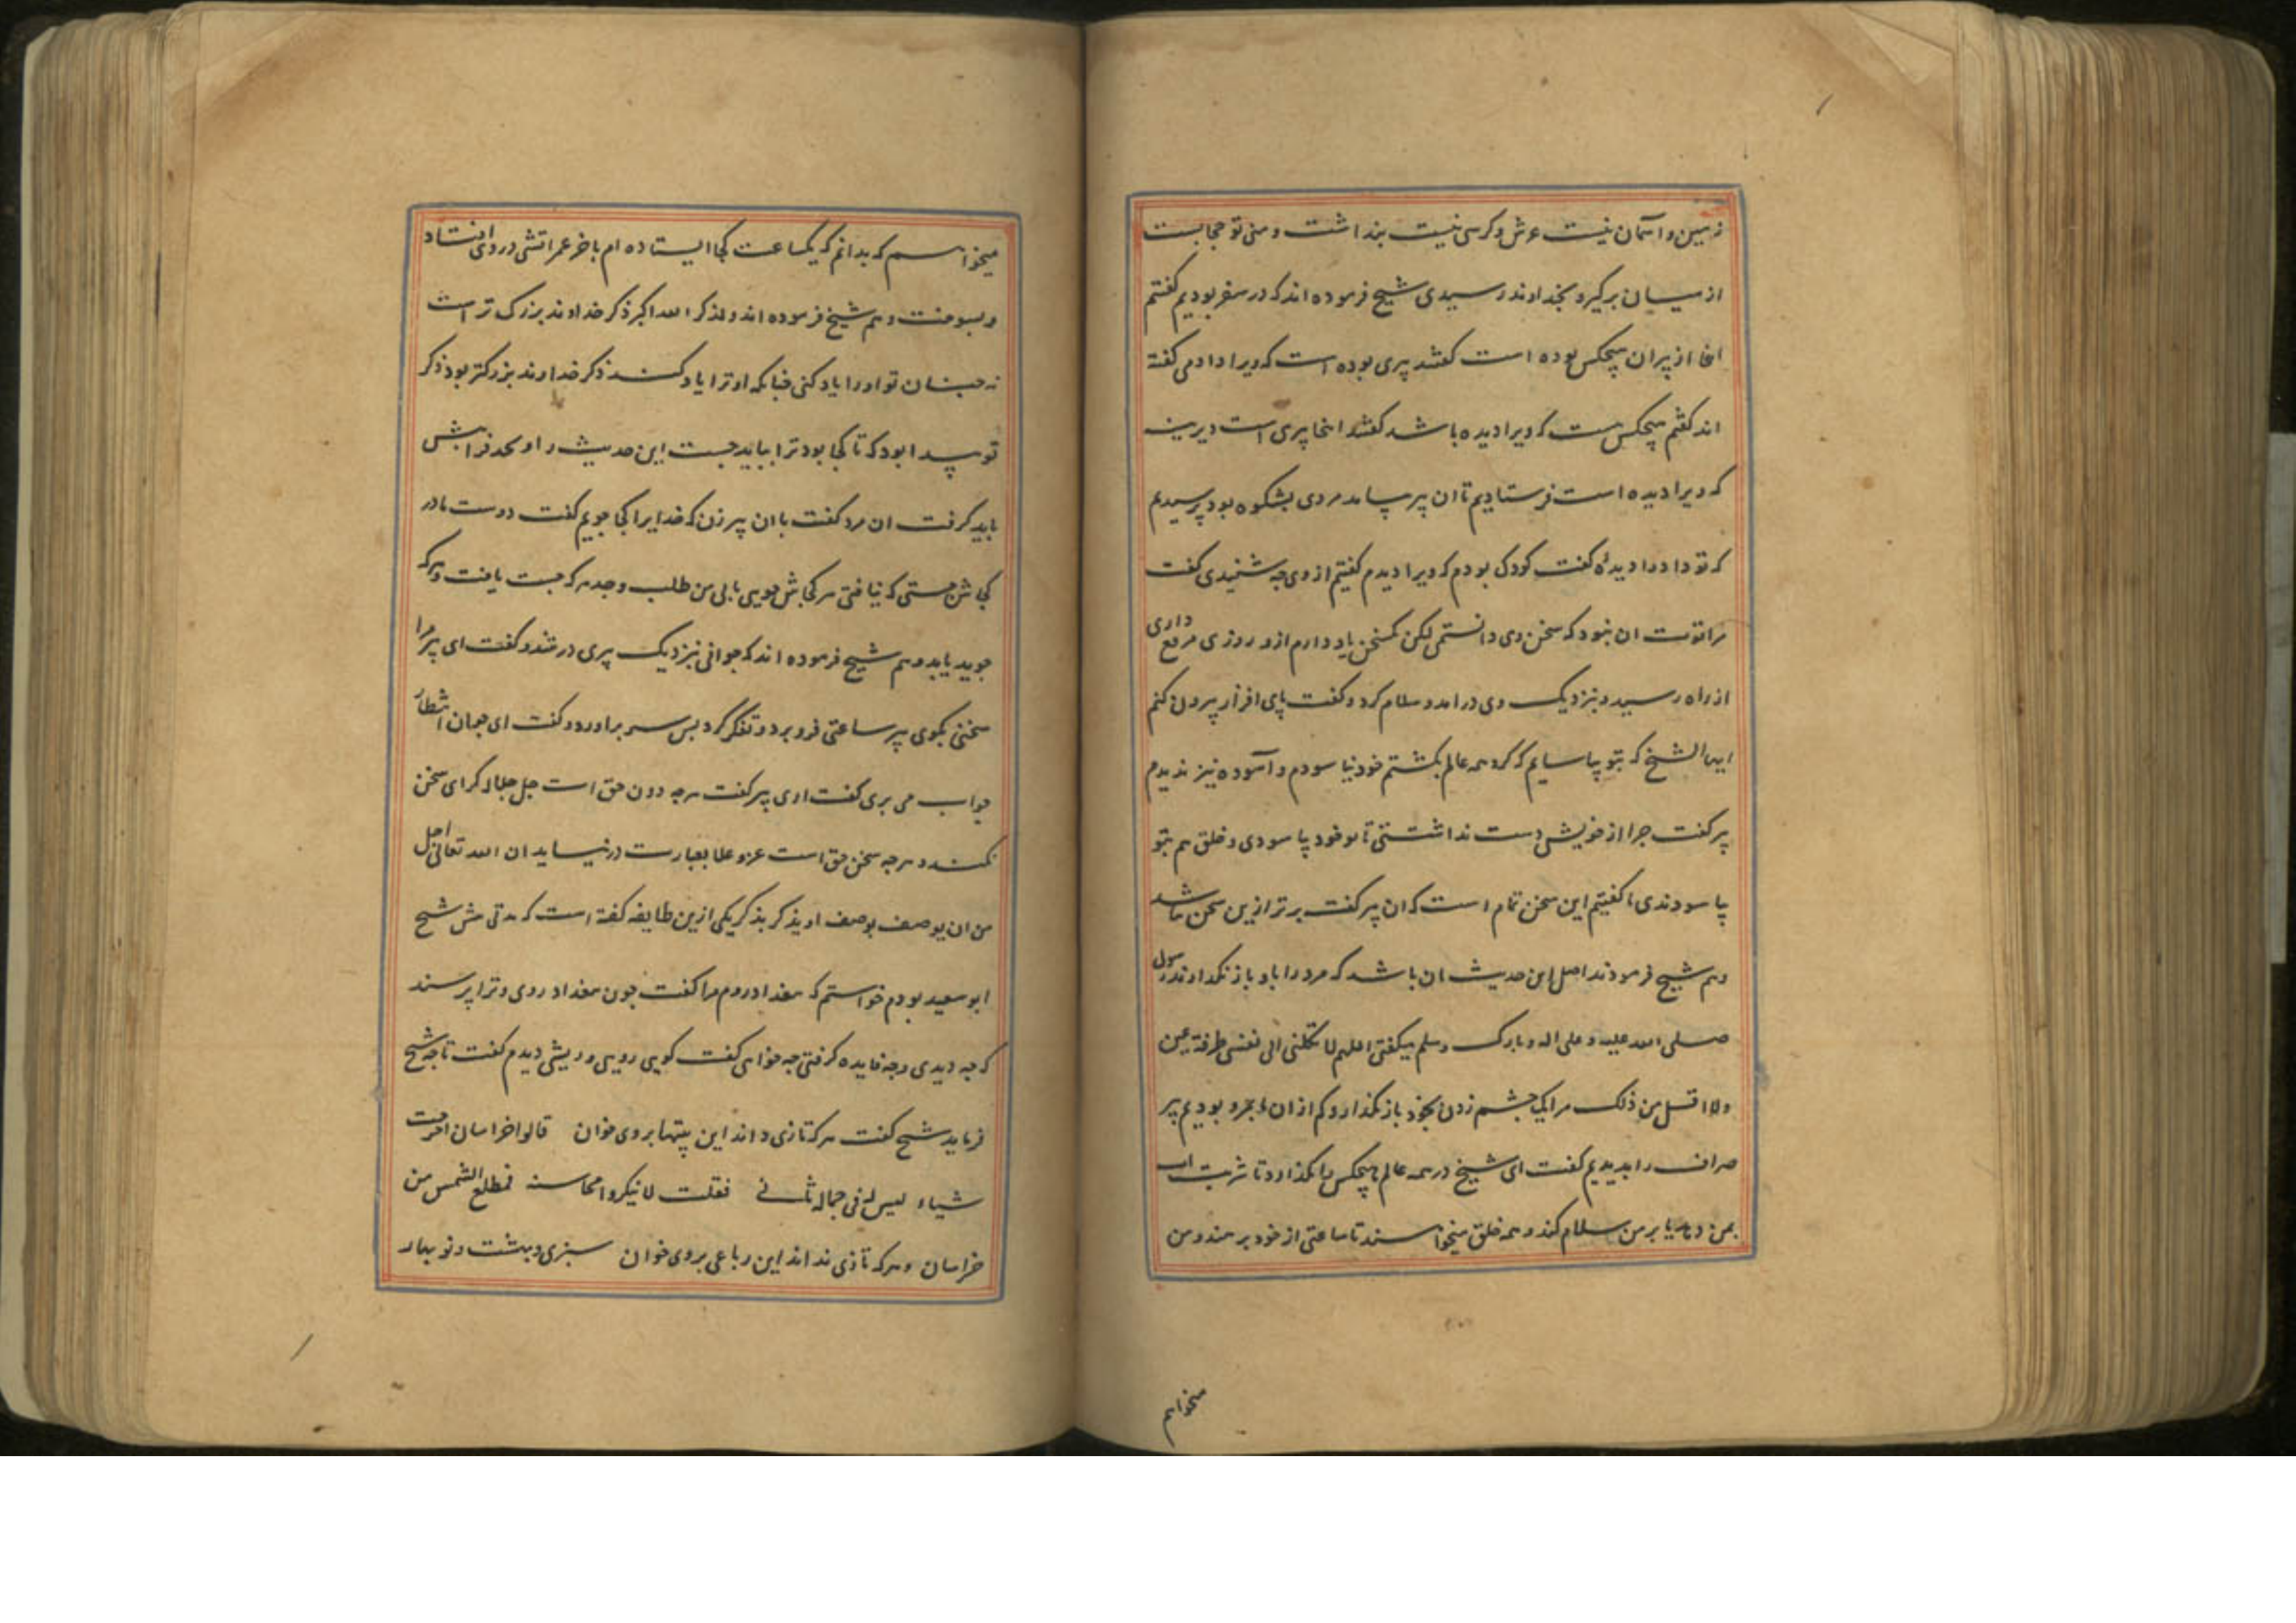 زمین و آسمان نیست عرش و کرسی نیست پنداشت و منی تو حجابست
از میان برگیر و بخداوند رسیدی شیخ فرموده اند که در سفر بودیم گفتم
اینجا از پیران هیچکس بوده است گفتند پیری بوده است که ویرا داد می گفته
اند گفتم هیچکس هست که ویرا دیده باشد گفتند اینجا پیری است دیرینه
که ویرا دیده است فرستادیم تا ان پیر بیامد مردی بشکوه بود پرسیدیم
که تو داد را دیدهٔ گفت کودک بودم که ویرا دیدم گفتیم از وی چه شنیدی گفت
مرا قوت ان نبود که سخن وی دانستمی لکن یکسخن یاد دارم از و روزی مرقع داری
از راه رسید و بنزدیک وی درامد و سلام کرد و گفت پای افزار بیرون کنم
ایها الشیخ که بتو بیاسایم که کرد همه عالم بگشتم خود نیاسودم و آسوده نیز ندیدم
پیر گفت چرا از خویش دست نداشتی تا هم خود بیاسودی و خلق هم بتو
بیاسودندی ما گفتیم این سخن تمام است که ان پیر گفت برتر ازین سخن نباشد
و هم شیخ فرمودند اصل این حدیث ان باشد که مرد را باو باز نگذارند رسول
صلی الله علیه و علی اله و بارک و سلم میگفتی اللهم لا تکلنی الی نفسی طرفة عین
ولا اقل من ذلک مرا یک چشم زدن بخود باز مگذار و کم از ان بمرو بودیم پیر
صراف را بدیدیم گفت ای شیخ در همه عالم هیچکس را نگذارد تا شربت اب
بمن دهد یا بر من سلام کند و همه خلق میخواهند تا ساعتی از خود برهند و من
میخواهم
میخواهم که بدانم که یکساعت کجا ایستاده ام باخر عمر اتشی در وی افتاد
و بسوخت و هم شیخ فرموده اند ولذکر الله اکبر ذکر خداوند بزرگ تر است
نه چنان تو او را یاد کنی چنانکه او ترا یاد کند ذکر خداوند بزرگتر بود ذکر
تو پیدا بود که تا کجا بود ترا بباید جست این حدیث را و لحد فرابش
باید گرفت ان مرد گفت با ان پیر زن که خدایرا کجا جویم گفت دوست مادر
کجاش جستی که نیافتی هر کجاش جویی یابی من طلب وجد هر که جست یافت و هر که
جوید یابد و هم شیخ فرموده اند که جوانی بنزدیک پیری در شد و گفت ای پیر مرا
سخنی بکوی پیر ساعتی فرو برد و تفکر کرد پس سر براورد و گفت ای جوان انتظار
جواب می بری گفت اری پیر گفت هر چه دون حق است جل جلاله کرای سخن
نکند و هر چه سخن حق است عز و علا بعبارت در نیاید ان الله تعالی اجل
من ان یوصف بوصف او یذکر بذکر یکی ازین طایفه گفته است که مدتی پیش شیخ
ابو سعید بودم خواستم که ببغداد روم مرا گفت چون ببغداد روی و ترا پرسند
که چه دیدی و چه فایده گرفتی چه خواهی گفت کویی رویی و ریشی دیدم گفت تا چه شیخ
فرماید شیخ گفت هر که تازی داند این بیتها بر وی خوان قالوا خراسان اخرجت
شیاء لیس له فی جماله ثانی فقلت لا تنکروا محاسنه فمطلع الشمس من
خراسان و هر که تازی نداند این رباعی بر وی خوان سبزی و بهشت و نو بهار